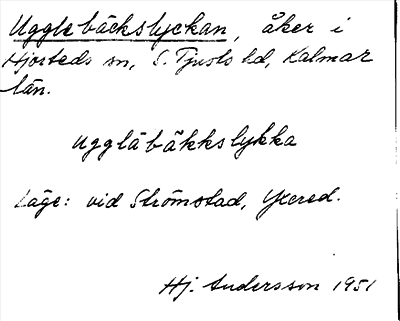 Ugglebäckslyckan, åker i
Hjorteds sn, S. Tjusts hd, Kalmar
län.
Ugglabäkkslykka
Läge: vid Strömstad, Yxered.
Hj. Andersson 1951